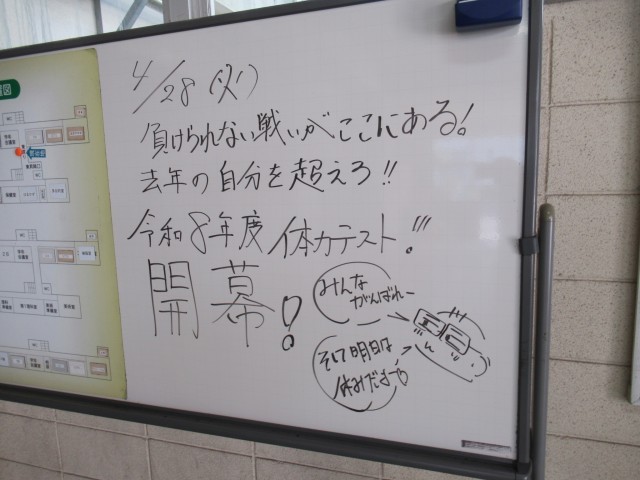 4/28(火)
負けられない戦いがここにある!
去年の自分を超えろ!!
令和8年度 体力テスト!!!
開幕!
みんな
がんばれー
そして明日は
休みだよ〜